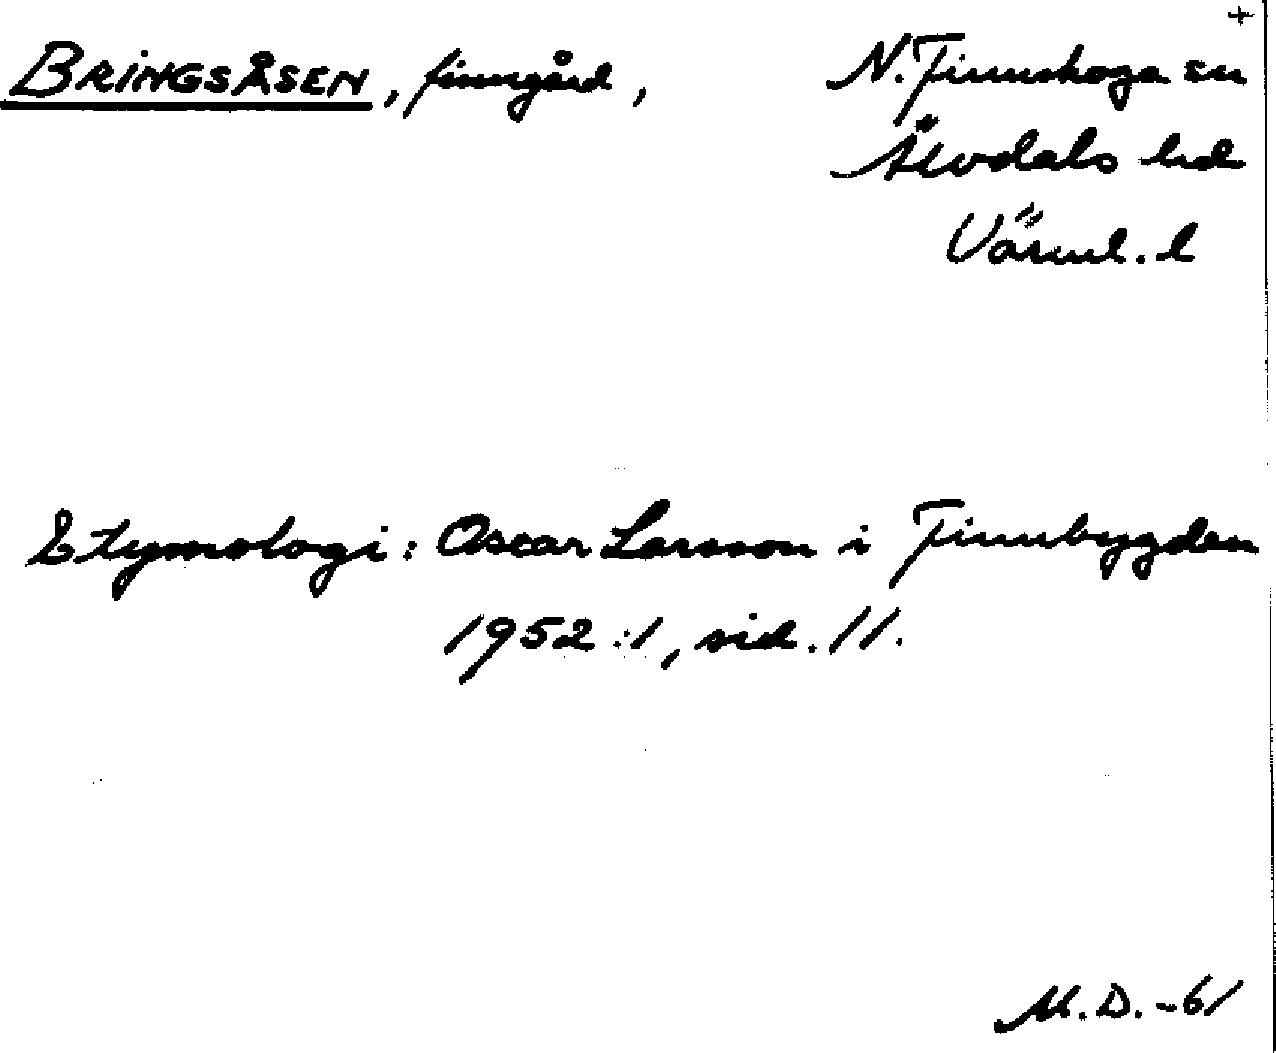 +
BRINGSÅSEN, finngård, N. Finnskoga sn
Älvdals hd
Värml. l
Etymologi: Oscar Larsson i Finnbygden
1952:1, sid. 11.
M.D. -61